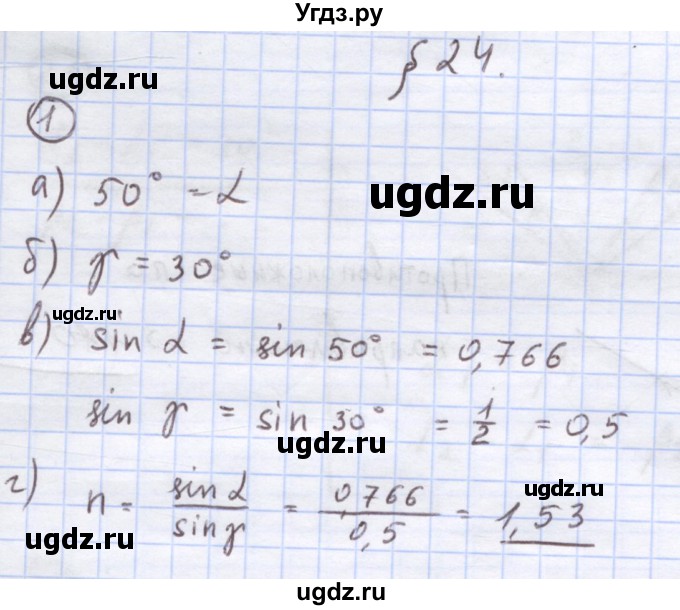 Угдз.ру
§ 24.
ugdz.ru
1
ugdz.ru
а) 50° = α
б) γ = 30°
ugdz.ru
в) sin α = sin 50° = 0,766
sin γ = sin 30° = 1/2 = 0,5
г) n = sin α / sin γ = 0,766 / 0,5 = 1,53
ugdz.ru
ugdz.ru
ugdz.ru